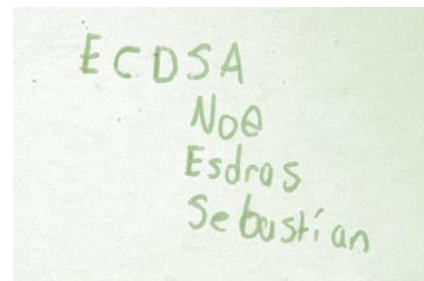 ECDSA
Noe
Esdras
Sebastían